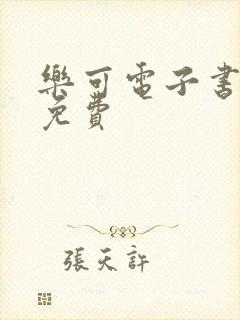 樂可電子書
免費
張天許